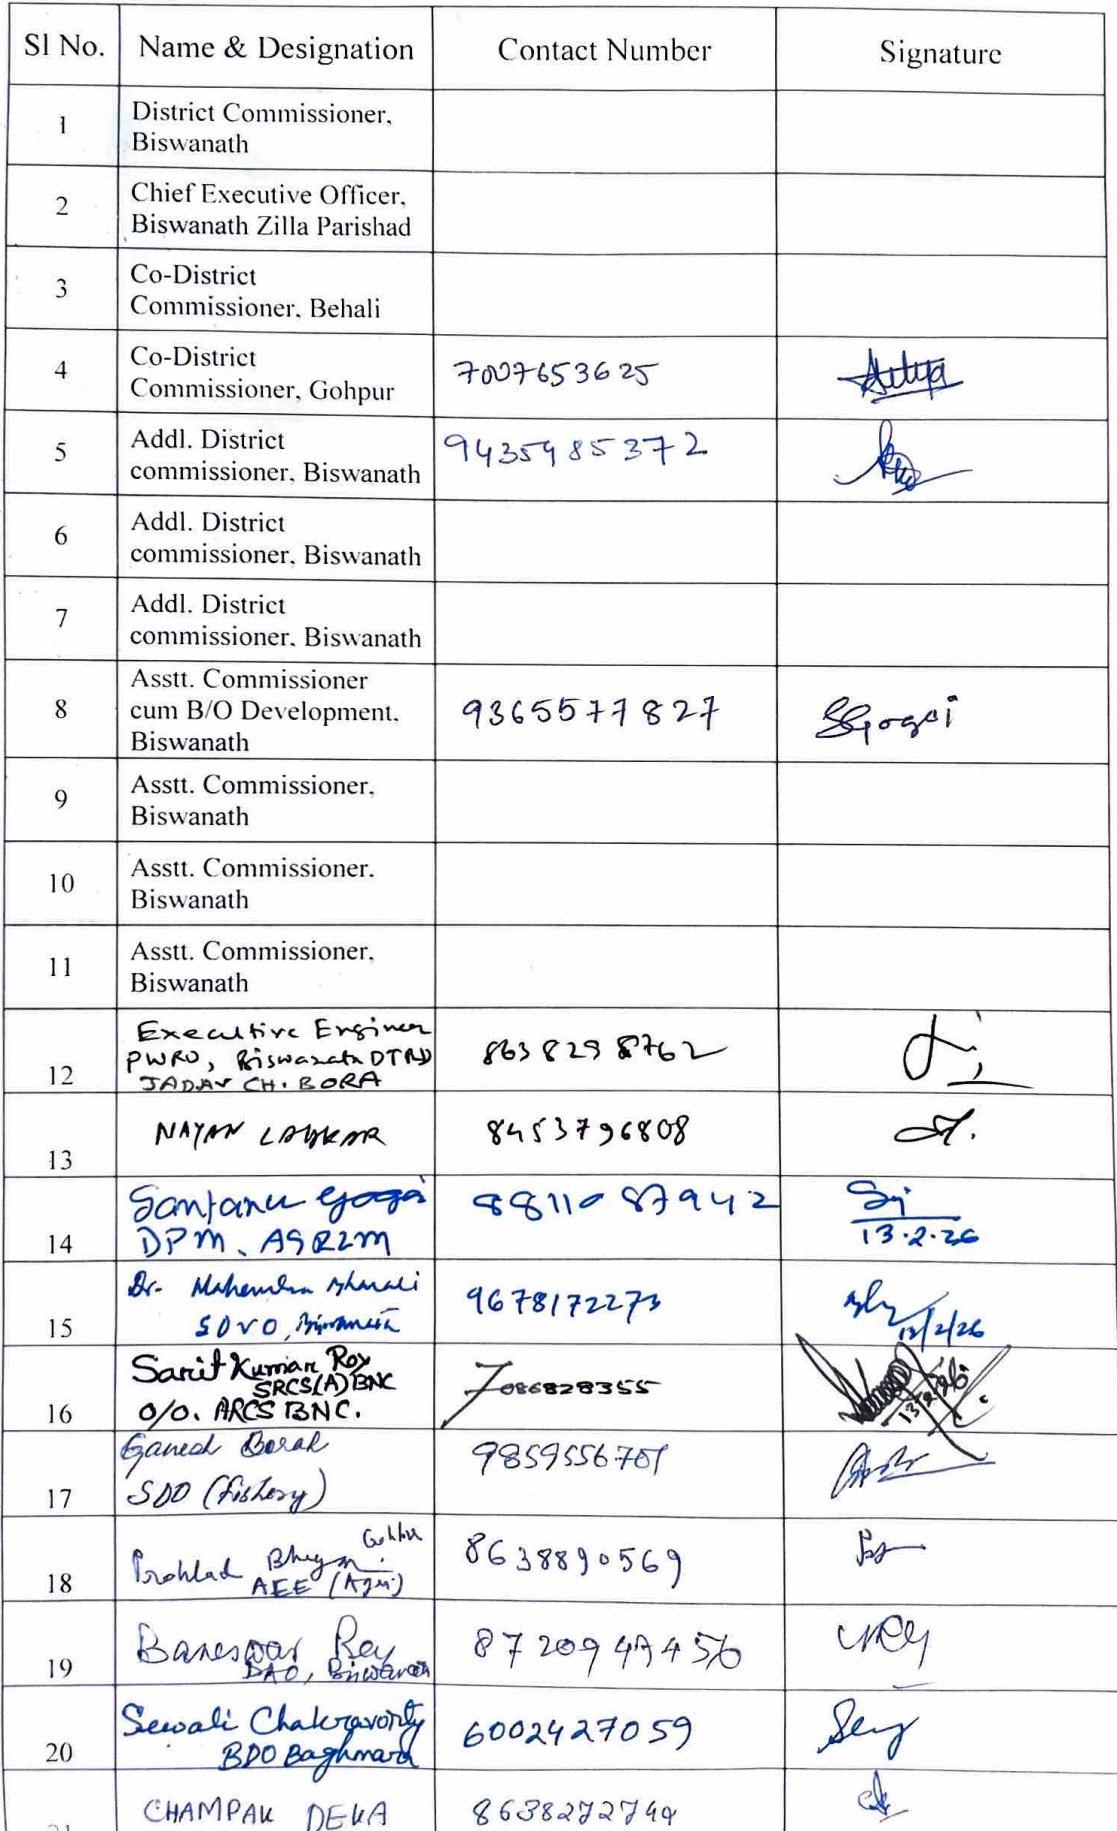 Sl No. Name & Designation Contact Number Signature
1 District Commissioner,
Biswanath
2 Chief Executive Officer,
Biswanath Zilla Parishad
3 Co-District
Commissioner, Behali
4 Co-District
Commissioner, Gohpur 7007653625
5 Addl. District
commissioner, Biswanath 9435485372
6 Addl. District
commissioner, Biswanath
7 Addl. District
commissioner, Biswanath
8 Asstt. Commissioner
cum B/O Development,
Biswanath 9365577827 SGogoi
9 Asstt. Commissioner,
Biswanath
10 Asstt. Commissioner.
Biswanath
11 Asstt. Commissioner,
Biswanath
12 Executive Engineer
PWRD, Biswanath DTRD
JADAV CH. BORA 8638298762
13 NAYAN LASKAR 8453796808
14 Santanu Gogoi 8811087942
DPM, ASRLM 13.2.26
15 Dr. Mahendra 9678172273
SDVO, Biswanath 13/2/26
16 Sarit Kumar Roy
SRCS(A) BNC 7086828355
O/O. ARCS BNC. 13/2/26
17 Ganesh Borah 9859556701
SDO (Fishery)
18 Prohlad Bhuyan 8638890569
AEE (Agri)
19 Baneswar Rey 8720947456
DAO, Biswanath
20 Sewali Chakravorty 6002427059
BDO Baghmara
21 CHAMPAK DEKA 8638272749